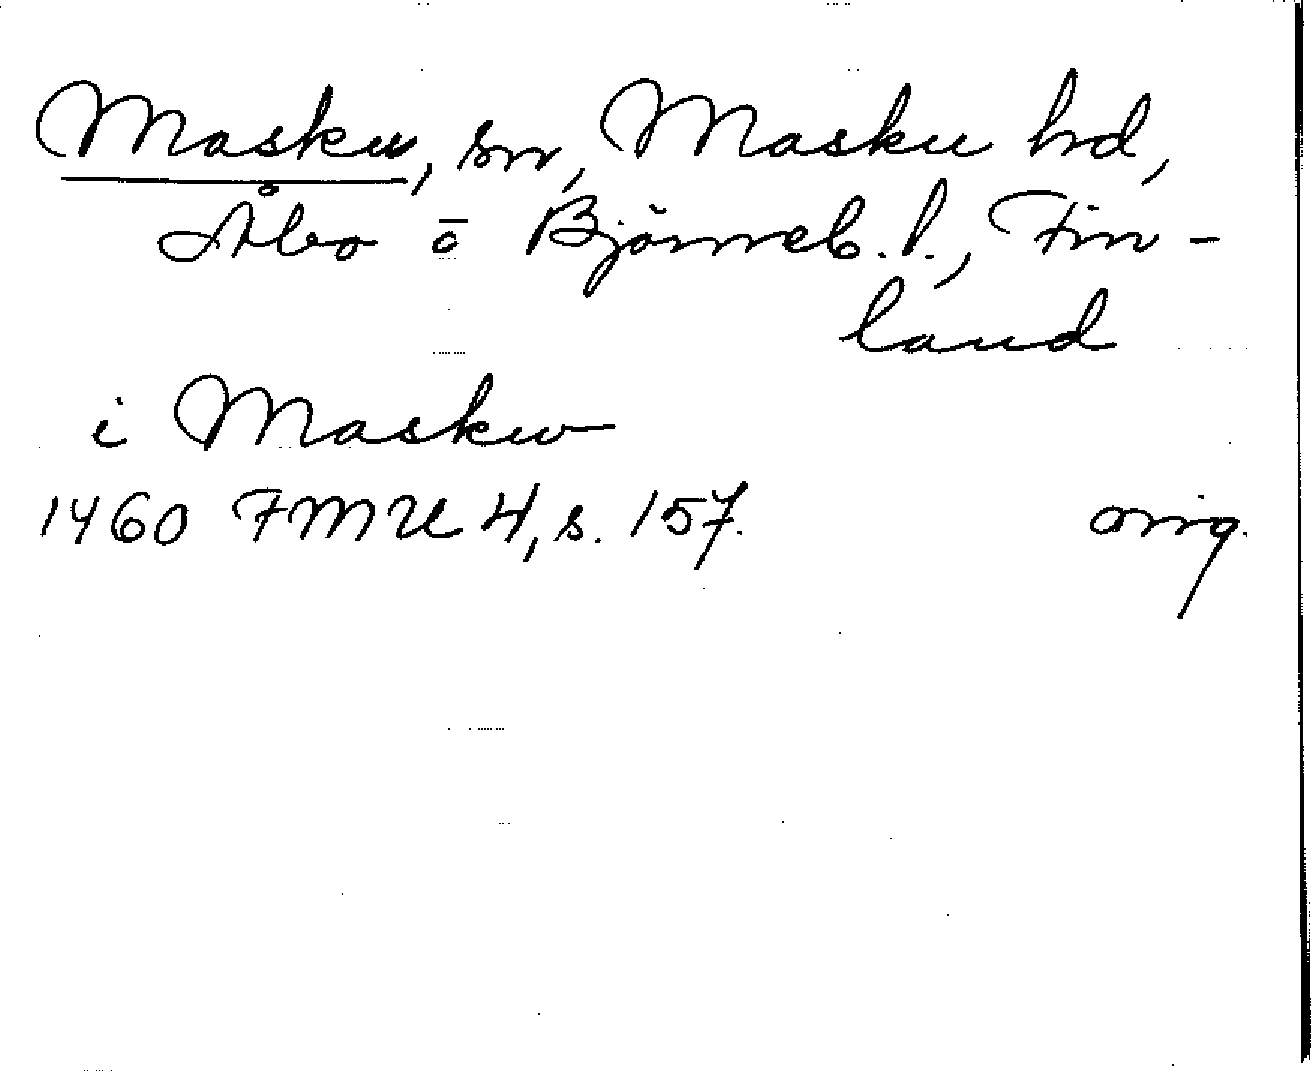 Masku, sn, Masku hd,
Åbo o Björneb. l., Fin-
land
i Maskw
1460 FMU 4, s. 157. orig.